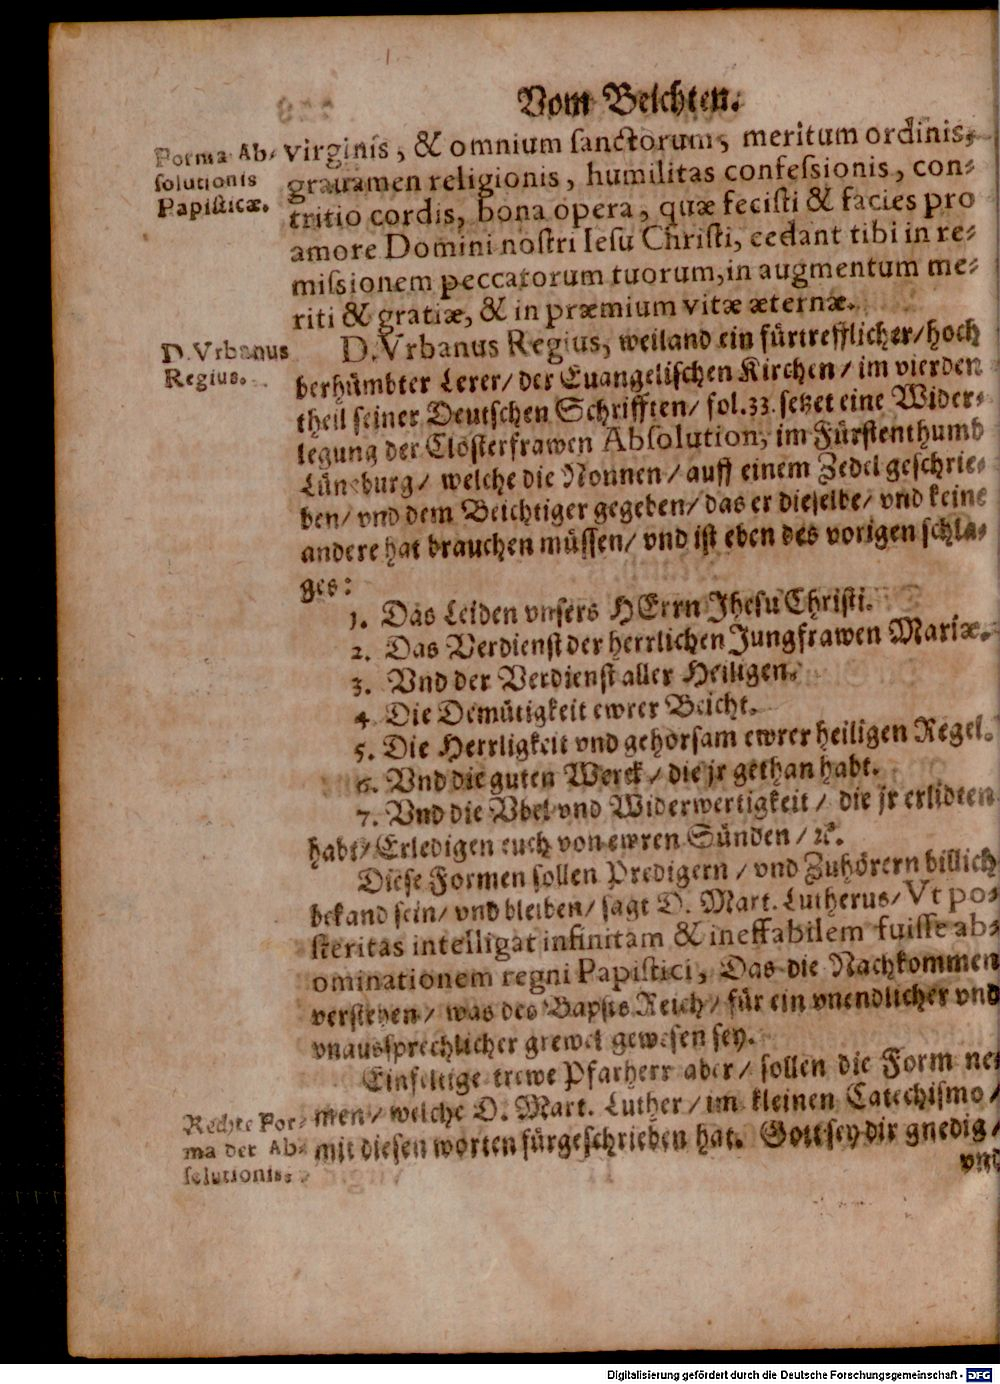 Vom Beichten.
Forma Ab-
solutionis
Papisticæ.
virginis, & omnium sanctorum, meritum ordinis,
grauamen religionis, humilitas confessionis, con-
tritio cordis, bona opera, quæ fecisti & facies pro
amore Domini nostri Iesu Christi, cedant tibi in re-
missionem peccatorum tuorum, in augmentum me-
riti & gratiæ, & in præmium vitæ æternæ.
D. Vrbanus
Regius.
D. Vrbanus Regius, weiland ein fürtrefflicher/ hoch
berhümbter Lerer/ der Euangelischen Kirchen/ im vierden
theil seiner Deutschen Schrifften/ fol. 33. setzet eine Wider-
legung der Closterfrawen Absolution, im Fürstenthumb
Lüneburg/ welche die Nonnen/ auff einem Zedel geschrie-
ben/ vnd dem Beichtiger gegeben/ das er dieselbe/ vnd keine
andere hat brauchen müssen/ vnd ist eben des vorigen schla-
ges:
1. Das Leiden vnsers HErrn Jhesu Christi.
2. Das Verdienst der herrlichen Jungfrawen Mariæ.
3. Vnd der Verdienst aller Heiligen.
4. Die Demütigkeit ewrer Beicht.
5. Die Herrligkeit vnd gehorsam ewrer heiligen Regel.
6. Vnd die guten Werck/ die jr gethan habt.
7. Vnd die Vbel vnd Widerwertigkeit/ die jr erlidten
habt/ Erledigen euch von ewren Sünden/ ꝛc.
Diese Formen sollen Predigern/ vnd Zuhörern billich
bekand sein/ vnd bleiben/ sagt D. Mart. Lutherus/ Vt po-
steritas intelligat infinitam & ineffabilem fuisse ab-
ominationem regni Papistici, Das die Nachkommen
verstehen/ was des Bapsts Reich/ für ein vnendlicher vnd
vnaussprechlicher grewel gewesen sey.
Einfeltige trewe Pfarherr aber/ sollen die Form ne-
Rechte For-
ma der Ab-
solutionis.
men/ welche D. Mart. Luther/ im kleinen Catechismo/
mit diesen worten fürgeschrieben hat. Gott sey dir gnedig/
vnd
Digitalisierung gefördert durch die Deutsche Forschungsgemeinschaft - DFG